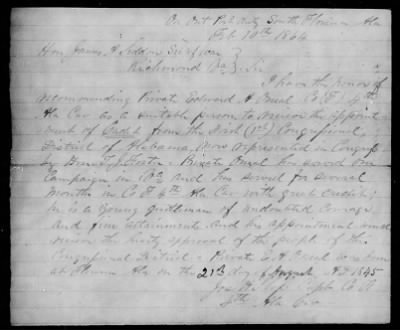 On Out Post duty South Florence Ala
Feb 10th 1864
Hon James A Seddon Sec of War
Richmond Va Sir
I have the honor of
recommending Private Edward A Oneal Co F 4th
Ala Cav as a suitable person to receive the appoint
ment of Cadet from the First (1st) Congressional
District of Alabama, now represented in Congress
by Hon T J Foster - Private Oneal has served one
Campaign in Va and has served for several
months in Co F 4th Ala Cav with great credit
he is a young gentleman of undoubted courage
and fine attainments and his appointment would
receive the hearty approval of the people of this
Congressional District - Private E A Oneal was born
at Florence Ala on the 21st day of August A.D. 1845
Capt Co A
4th Ala Cav